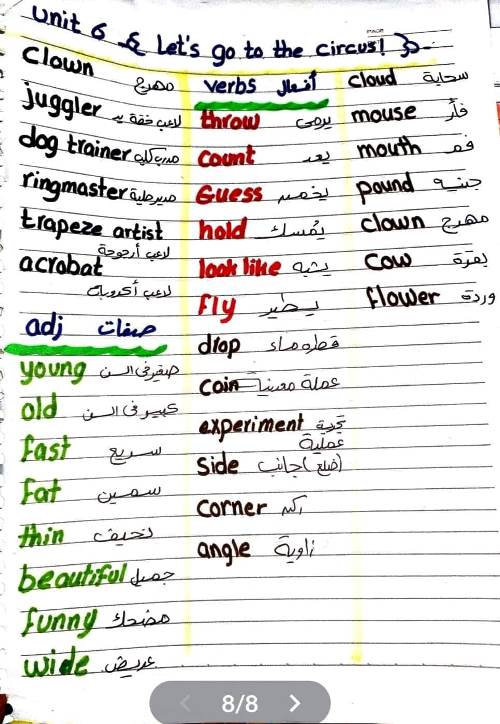 Unit 6 Let's go to the circus!
clown مهرج
juggler لاعب خفة يد
dog trainer مدرب كلاب
ringmaster مدير حلبة
trapeze artist
لاعب أرجوحة
acrobat
لاعب أكروبات
adj صفات
young صغير في السن
old كبير في السن
fast سريع
fat سمين
thin نحيف
beautiful جميل
funny مضحك
wide عريض
verbs أفعال
throw يرمى
count يعد
Guess يخمن
hold يمسك
look like يشبه
fly يطير
drop قطرة ماء
coin عملة معدنية
experiment تجربة
عملية
side جانب (ضلع)
corner ركن
angle زاوية
cloud سحابة
mouse فأر
mouth فم
pound جنيه
clown مهرج
cow بقرة
flower وردة
8/8